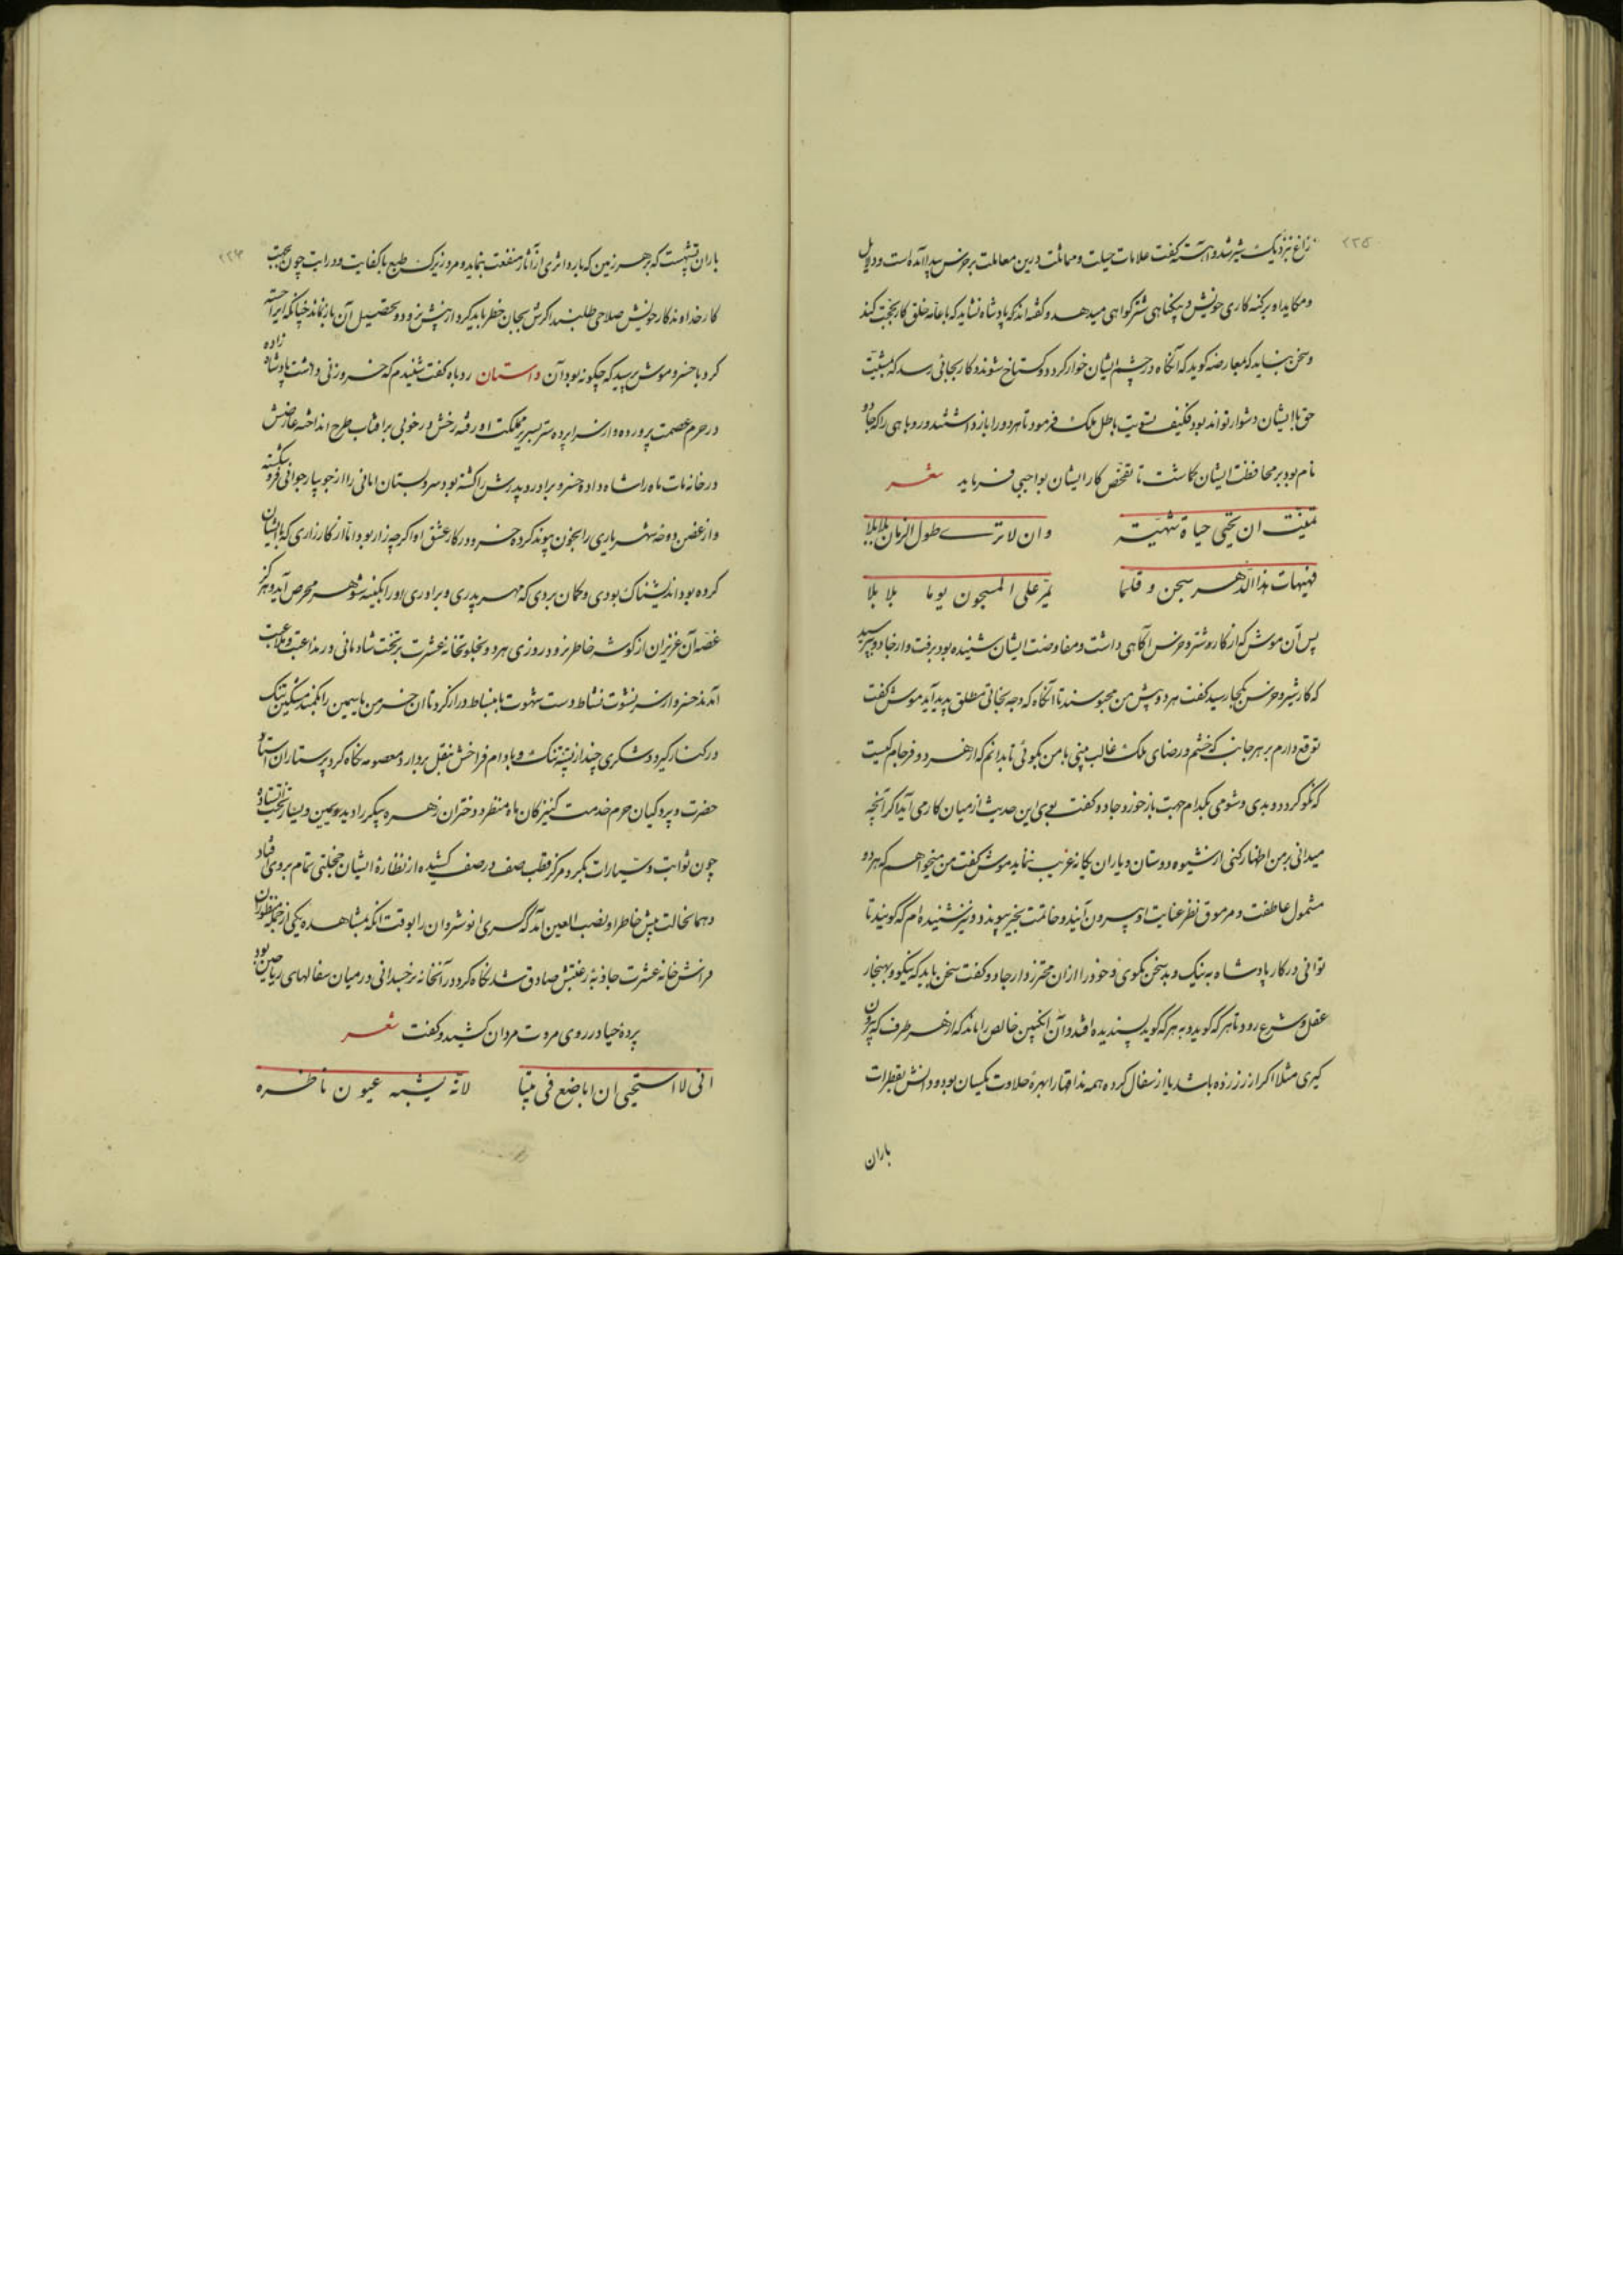 ۲۲۵
زاغ نزدیک شیر شد و آهسته گفت علامات حیلت و مماثلت درین معاملت بر خرس پیدا آمده است و دلایل
و مکاید او بر کنه کاری خویش و بیکناهی شتر کواهی میدهد و کفته‌اند که پادشاه نشاید که با عامه خلق کار بحجت کند
و سخن بنباید که بمعارضه کوید که آنکاه در چشم ایشان خوار کردد و کستاخ شوند و کار بجائی رسد که مشیت
حق با ایشان دشوار تواند بود فکیف تسویت باطل ملک فرمود تا هر دو را باز داشتند و روباهی را که جادو
نام بود بر محافظت ایشان کماشت تا تفحص کار ایشان بواجبی فرماید شعر
تمنیت ان یحیی حیاة شهیة وان لا تری طول الزمان بلابلا
فهیهات هذا الدهر سجن و قلما یمر علی المسجون یوما بلا بلا
پس آن موش که از کار و شتر و خرس آکاهی داشت و مفاوضت ایشان شنیده بود برفت و از جادو بپرسید
که کار شیر و خرس بکجا رسید کفت هر دو پیش من محبوسند تا آنکاه که وجه نجاتی مطلق پدید آید موش کفت
توقع دارم بر هر جانب که خشم و رضای ملک غالب بینی با من بکوئی تا بدانم که از هر دو فرجام کیست
که نکو کردد و بدی و شومی بکدام جهت باز خورد جادو کفت بوی این حدیث از میان کار می آید اکر آنچه
میدانی بر من اظهار کنی از شیوه دوستان و یاران یکانه غریب ننماید موش کفت من میخواهم که هر دو
مشمول عاطفت و مرموق نظر عنایت او بیرون آیند و خاتمت بخیر پیوندد و نیز شنیده‌ام که کویند تا
توانی در کار پادشاه به نیک و بد سخن مکوی و خود را ازان محترز دار جادو کفت سخن باید که نیکو و بهنجار
عقل و شرع رود تا هر که کوید و به هر که کوید پسندیده افتد و آن انکبین خالص را ماند که از هر طرف که بیرون
کیری مثلا اکر از زر زده باشد یا از سفال کرده همه مذاقها را بهره حلاوت یکسان بود و دانش بقطرات
باران
۲۲۶
باران نیسانست که بر هر زمین که بارد اثری از آثار منفعت بنماید و مرد زیرک طبع با کفایت و درایت چون بحجت
کار خداوندکار خویش صلاحی طلبد اکرش بجان خطر باید کرد از پیش برود و تحصیل آن باز نماند چنانکه ایراجسته
کرد با خسرو موش پرسید که چکونه بود آن داستان روباه کفت شنیدم که خسرو زنی داشت پادشاه زاده
در حرم عصمت پرورده و از سراپرده ستر بسریر مملکت او رفته رخش در خوبی بر افتاب طرح انداخته عارضش
در خانه مات ماه را شاه داده خسرو برادر و پدرش را کشته بود و سرو بستان امانی را از جویبار جوانی فرو شکسته
و از غصن دوحه شهریاری را بخون پیوند کرده خسرو در کار عشق او اکرچه زار بود اما از کارزاری که با ایشان
کرده بود اندیشناک بودی و کمان بردی که مهر پدری و برادری او را بکینه شوهر محرض آید و هرکز
غصه آن عزیزان از کوشه خاطر نرود روزی هر دو بخلوتخانه عشرت بر تخت شادمانی در مداعبت و ملاعبت
آمدند خسرو از سر نشوت نشاط دست شهوت بانبساط دراز کرد تا آن خرمن یاسمین را بکمند مشکین تنک
در کنار کیرد و شکری چند از پسته تنک و بادام فراخش بنقل بردارد معصومه نکاه کرد پرستاران استار
حضرت و پردکیان حرم خدمت کنیزکان ماه منظر و دختران زهره پیکر را دید بر یمین و یسار تخت ایستاده
چون ثوابت و سیارات بکرد مرکز قطب صف در صف کشیده از نظاره ایشان خجلتی تمام بروی افتاد
و هما نحالت پیش خاطر او نصب العین آمد که کسری انوشروان را بوقت انکه مشاهده یکی از جمله منظوران
فراش خانه عشرت جاذبه رغبتش صادق شد نکاه کرد در آنخانه نرخسدانی در میان سفالهای ریاحین بود
پرده حیا در روی مروت مردان کشید و کفت شعر
انی لا استحیی ان اباضع فی بیتا لانه یشبه عیون ناظره